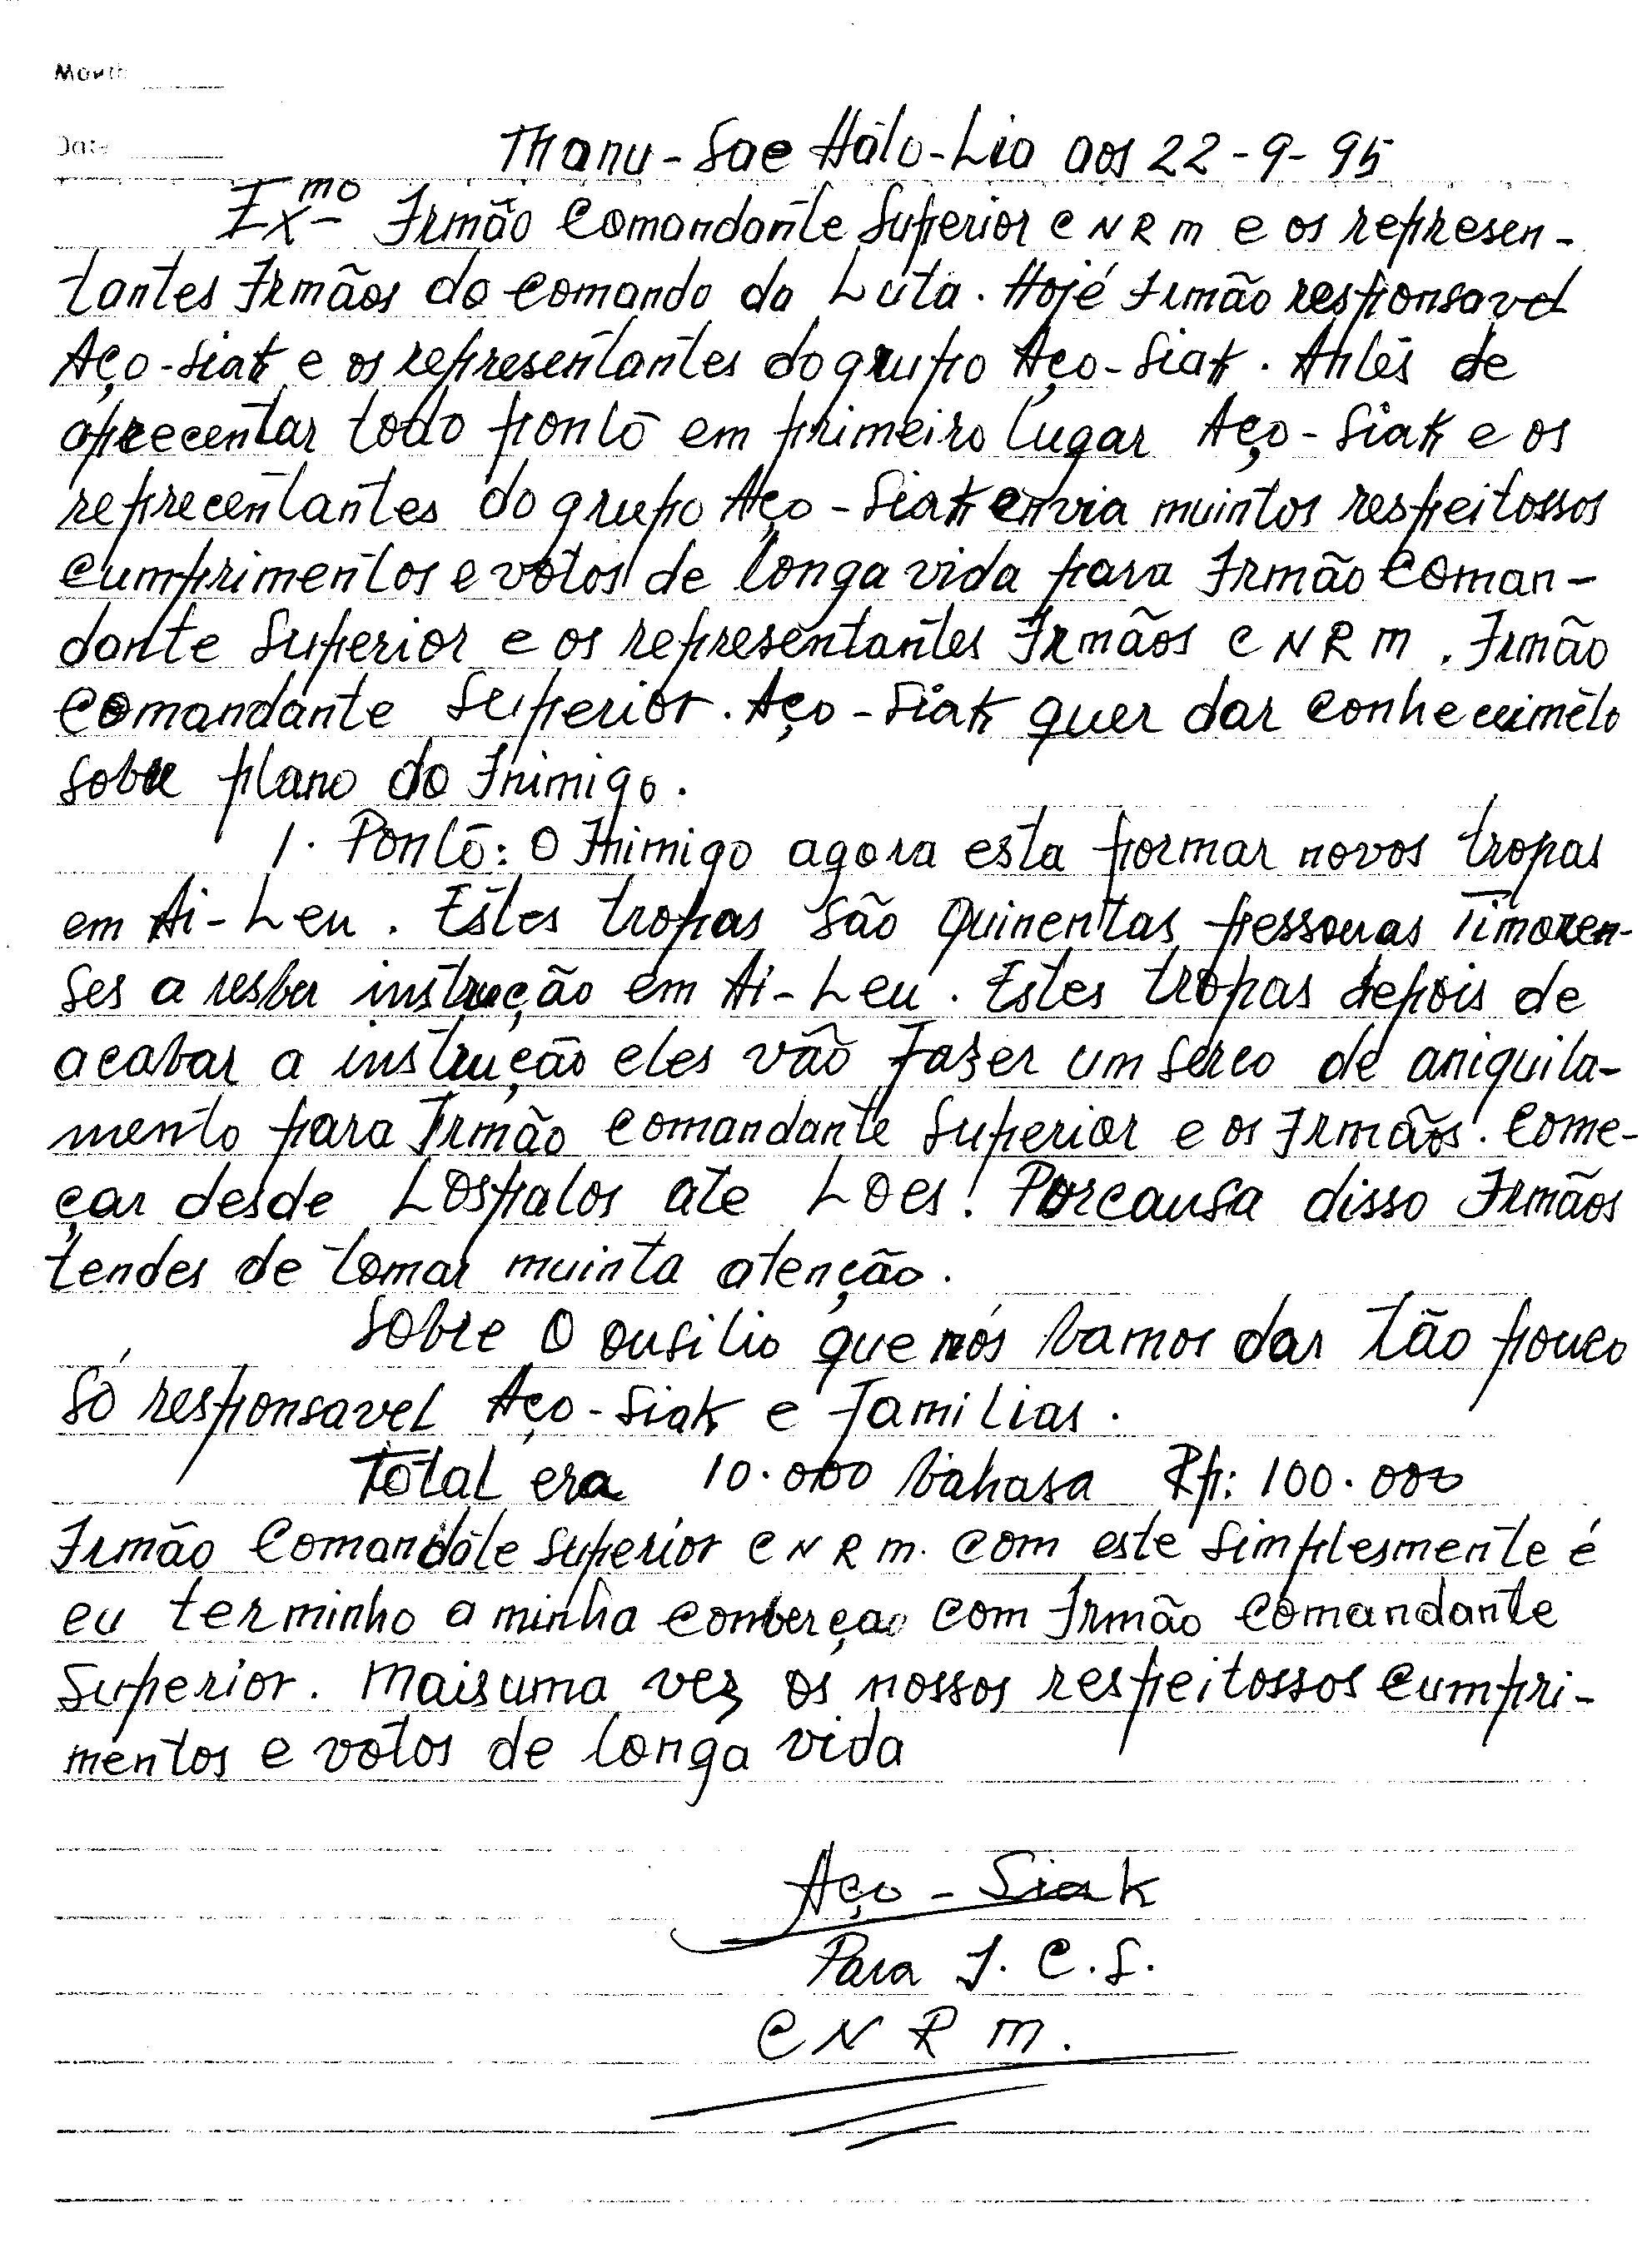 Month
Date
Thanu-Sae Hálo-Lia aos 22-9-95
Exmo Irmão Comandante Superior C N R M e os represen-
tantes Irmãos do Comando da Luta. Hojé Irmão responsavel
Aço-Siak e os representantes do grupo Aço-Siak. Antes de
aprecentar todo ponto em primeiro lugar Aço-Siak e os
reprecentantes do grupo Aço-Siak envia muintos respeitossos
Cumprimentos e votos de longa vida para Irmão Coman-
dante Superior e os representantes Irmãos C N R M. Irmão
Comandante Superior. Aço-Siak quer dar conhecimẽto
sobre plano do Inimigo.
1. Ponto: O Inimigo agora esta formar novos tropas
em Ai-Leu. Estes tropas são quinentas pessouas Timoren-
ses a resber instrução em Ai-Leu. Estes tropas depois de
acabar a instrução eles vão fazer um serco de aniquila-
mento para Irmão Comandante Superior e os Irmãos. Come-
çar desde Lospalos ate Loes! Porcausa disso Irmãos
tendes de tomar muinta atenção.
Sobre O ousilio que nós bamos dar tão pouco
só responsavel Aço-Siak e familias.
Total era 10.000 bahasa Rp: 100.000
Irmão Comandãte Superior C N R M. Com este simplesmente é
eu terminho a minha comberçao com Irmão Comandante
Superior. Maisuma vez os nossos respeitossos Cumpri-
mentos e votos de longa vida
Aço-Siak
Para I. C. S.
C N R M.